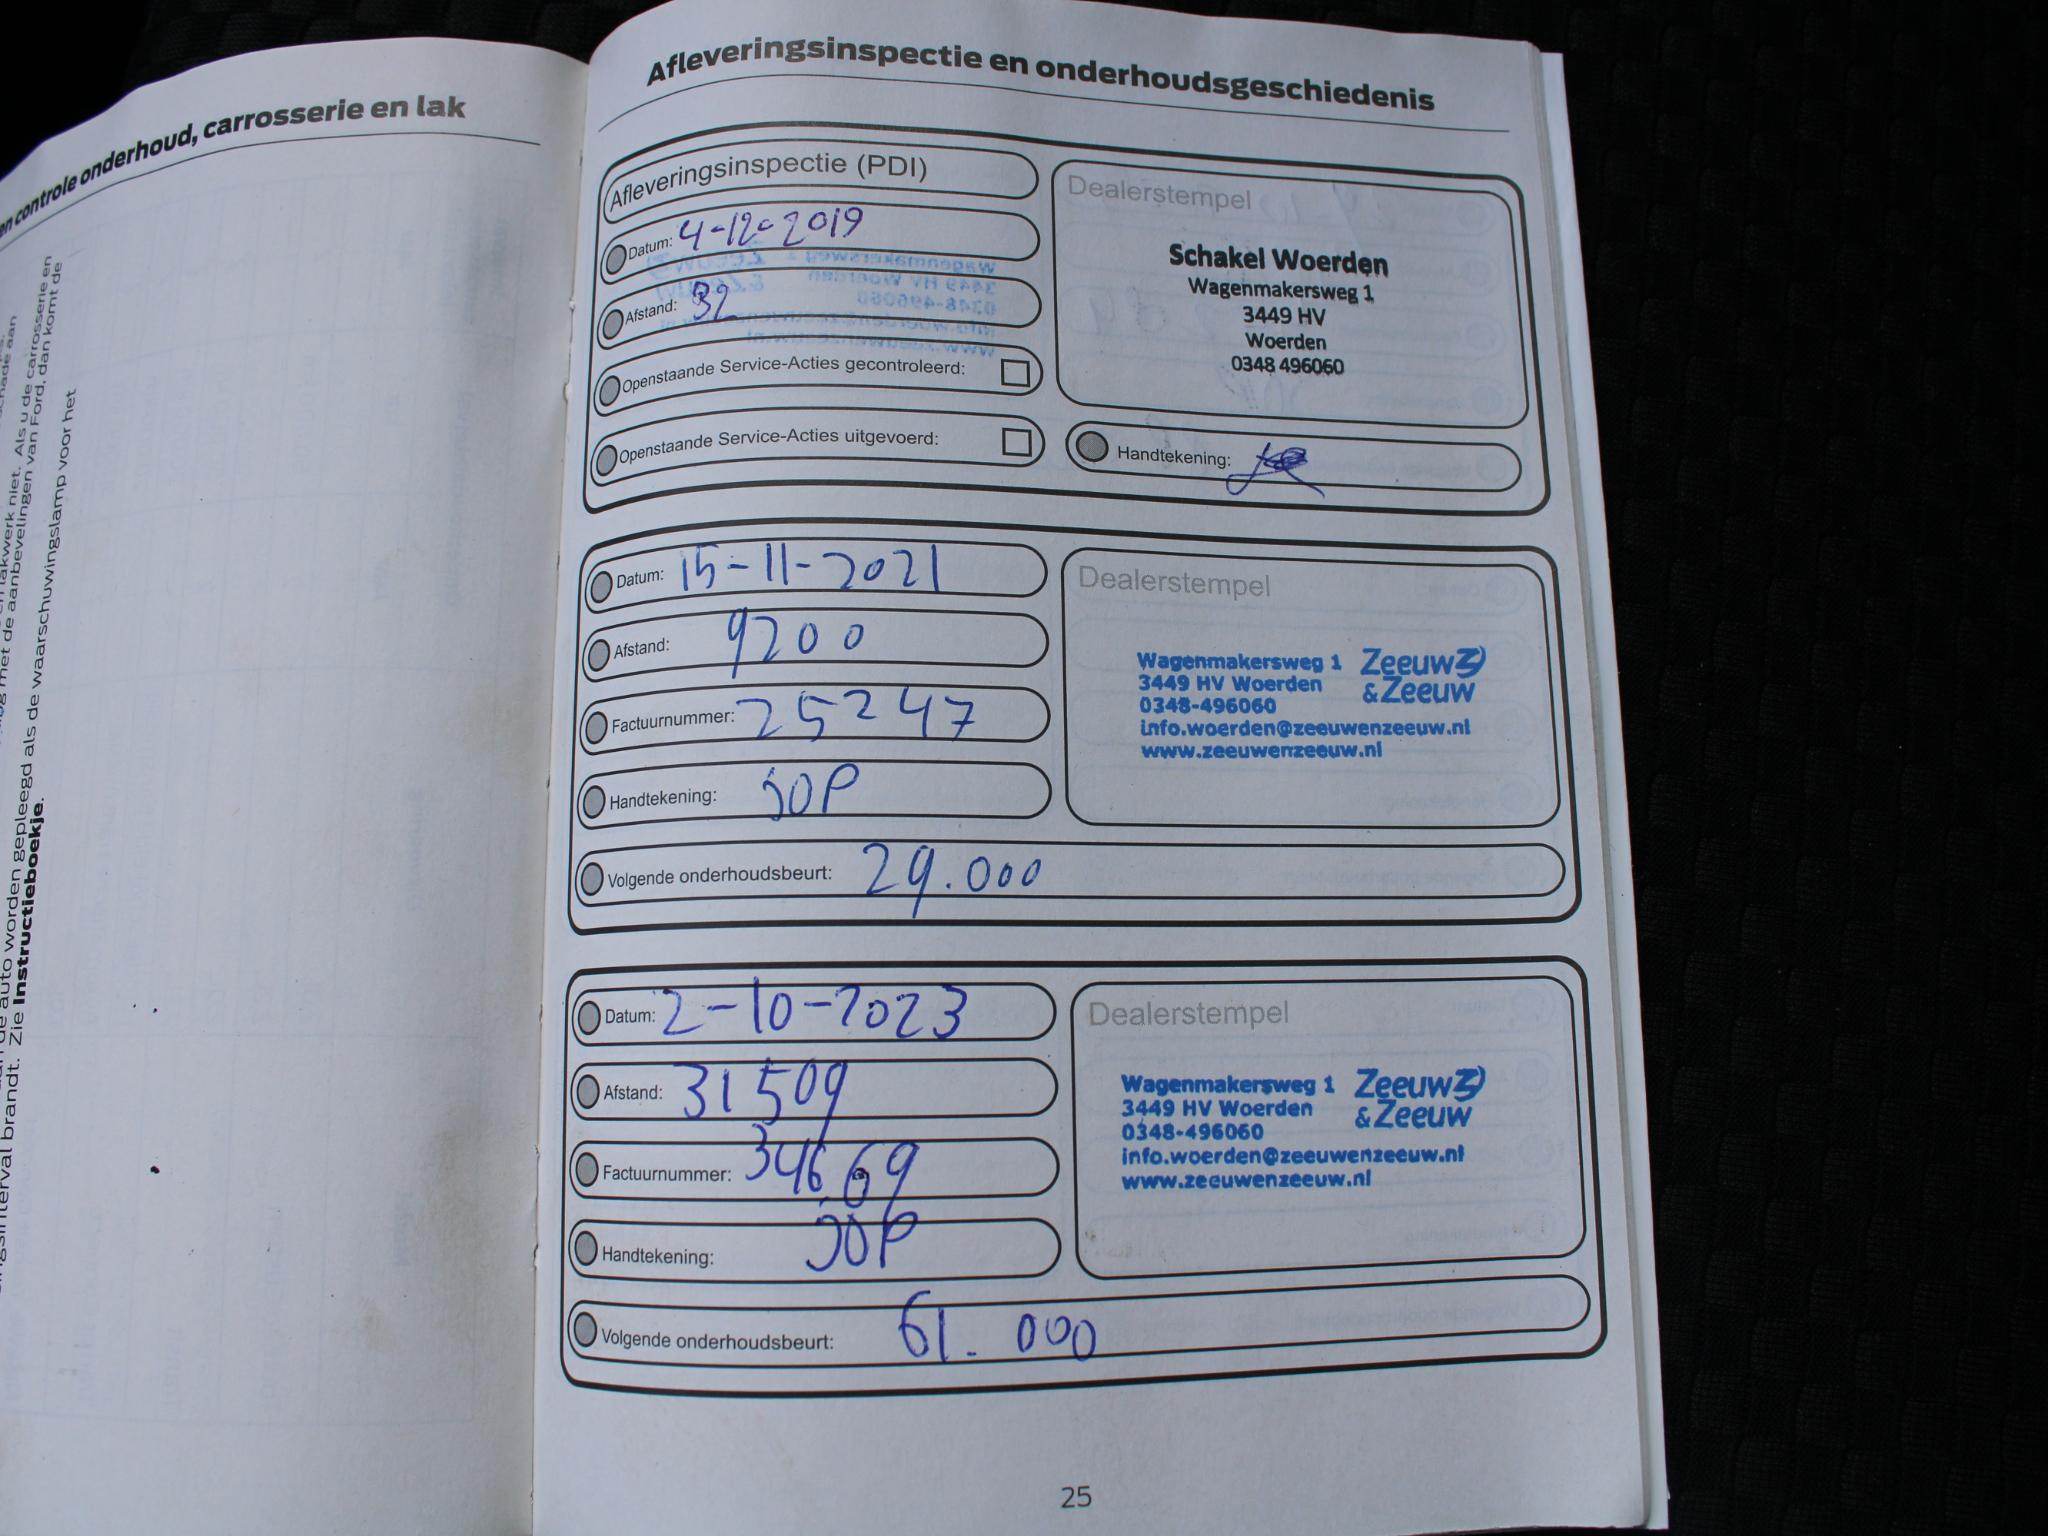 en controle onderhoud, carrosserie en lak
lakwerk niet. Als u de carrosserie en
met de aanbevelingen van Ford, dan komt de
de auto worden gepleegd als de waarschuwingslamp voor het
interval brandt. Zie Instructieboekje.
Afleveringsinspectie en onderhoudsgeschiedenis
Afleveringsinspectie (PDI)
Datum: 4-12-2019
Afstand: 32
Openstaande Service-Acties gecontroleerd:
Openstaande Service-Acties uitgevoerd:
Dealerstempel
Schakel Woerden
Wagenmakersweg 1
3449 HV
Woerden
0348 496060
Handtekening:
Datum: 15-11-2021
Afstand: 9200
Factuurnummer: 25247
Handtekening: JOP
Volgende onderhoudsbeurt: 29.000
Dealerstempel
Wagenmakersweg 1
3449 HV Woerden
0348-496060
info.woerden@zeeuwenzeeuw.nl
www.zeeuwenzeeuw.nl
Zeeuw
&Zeeuw
Datum: 2-10-2023
Afstand: 31509
Factuurnummer: 34669
Handtekening: JOP
Volgende onderhoudsbeurt: 61.000
Dealerstempel
Wagenmakersweg 1
3449 HV Woerden
0348-496060
info.woerden@zeeuwenzeeuw.nl
www.zeeuwenzeeuw.nl
Zeeuw
&Zeeuw
25